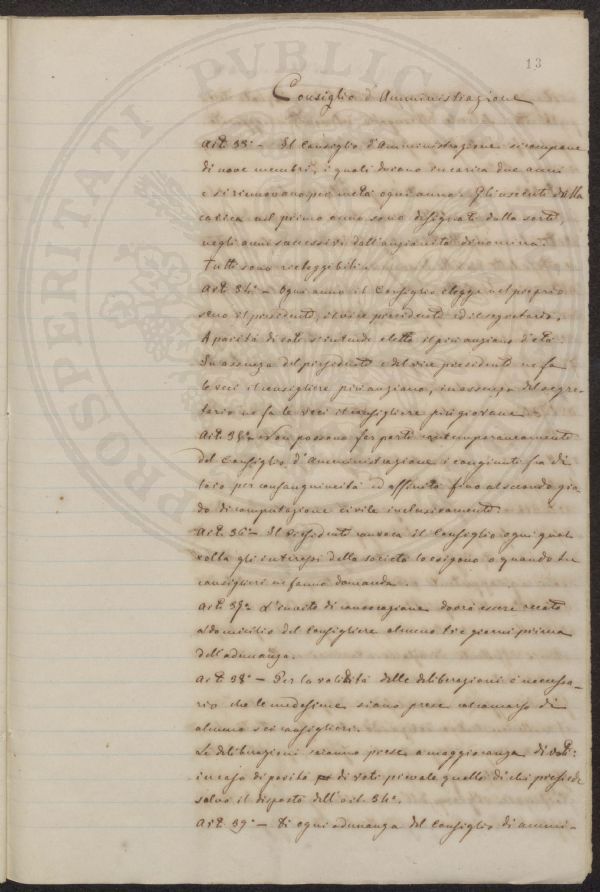 13
Consiglio d'Amministrazione
Art. 33° - Il Consiglio d'Amministrazione si compone
di nove membri, i quali durano in carica due anni
e si rinnovano per metà ogni anno. Gli uscenti dalla
carica nel primo anno sono designati dalla sorte,
negli anni successivi dall'anzianità di nomina.
Tutti sono rieleggibili.
Art. 34° - Ogni anno il Consiglio elegge nel proprio
seno il presidente, il vice presidente ed il segretario.
A parità di voti s'intende eletto il più anziano d'età.
In assenza del presidente e del vice presidente ne fa
le veci il consigliere più anziano, in assenza del segre-
tario ne fa le veci il consigliere più giovane.
Art. 35° - Non possono far parte contemporaneamente
del Consiglio d'Amministrazione i congiunti fra di
loro per consanguineità ed affinità fino al secondo gra-
do di computazione civile inclusivamente.
Art. 36° - Il Presidente convoca il Consiglio ogni qual
volta gli interessi della società lo esigono o quando tre
consiglieri ne fanno domanda.
Art. 37° L'invito di convocazione dovrà essere recato
a domicilio del Consigliere almeno tre giorni prima
dell'adunanza.
Art. 38° - Per la validità delle deliberazioni è necessa-
rio che le medesime siano prese col concorso di
almeno sei consiglieri.
Le deliberazioni saranno prese a maggioranza di voti:
in caso di parità di voti prevale quello di chi presiede
salvo il disposto dell'art. 34°.
Art. 39° - Di ogni adunanza del Consiglio di ammi-
PROSPERITATI PVBLIC